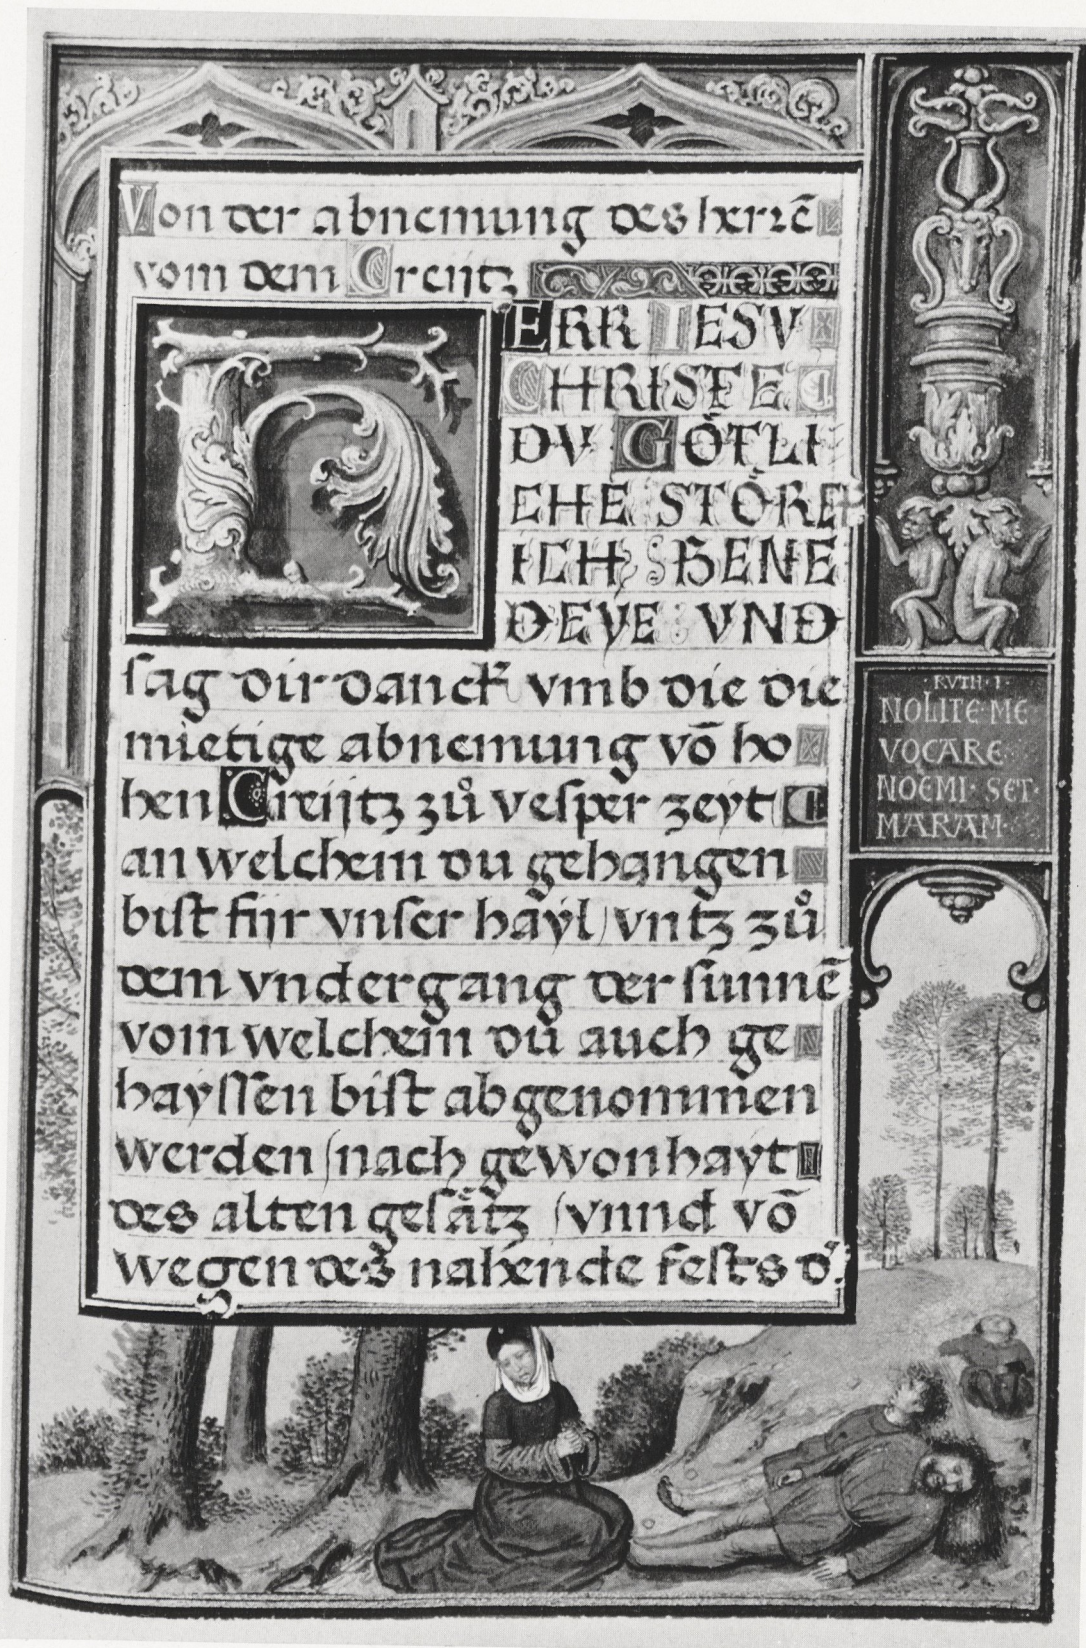 Von der abnemung des herrē
vom dem Creijtz
h
ERR IESV
CHRISTE
DV GÖTLI
CHE STÖRCK
ICH BENE
DEYE VND
sag dir danck vmb die die
mietige abnemung vō ho
hen Creijtz zů vesper zeyt
an welchem du gehangen
bist fijr vnser hayl / vntz zů
dem vndergang der sunnē
vom welchem dů auch ge
hayssen bist abgenommen
werden / nach gewonhayt
des alten gesätz / vnnd vō
wegen des nahende fests d'
·RVTH·I·
NOLITE·ME
VOCARE·
NOEMI· SET·
MARAM·